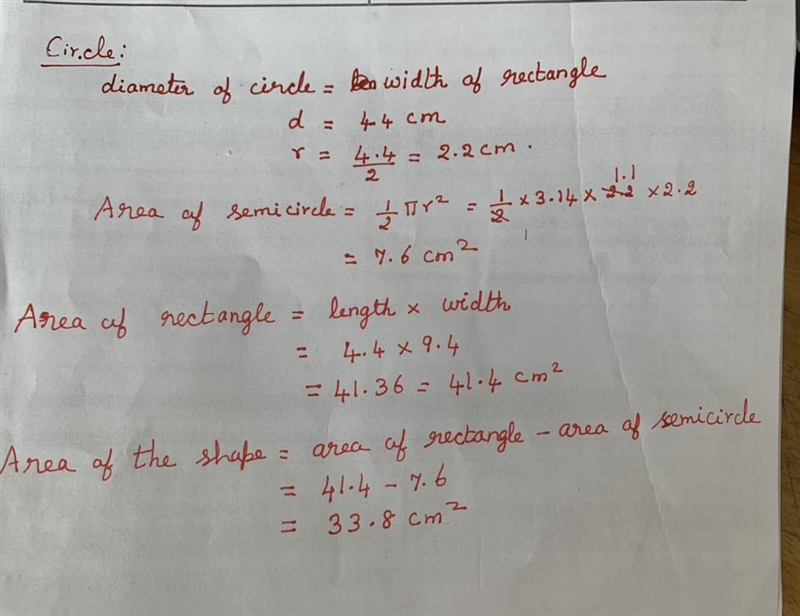 Circle:
diameter of circle = width of rectangle
d = 44 cm
r = 4.4/2 = 2.2 cm.
Area of semicircle = 1/2 πr² = 1/2 × 3.14 × 2.2 1.1 × 2.2
= 7.6 cm²
Area of rectangle = length × width
= 4.4 × 9.4
= 41.36 = 41.4 cm²
Area of the shape = area of rectangle - area of semicircle
= 41.4 - 7.6
= 33.8 cm²